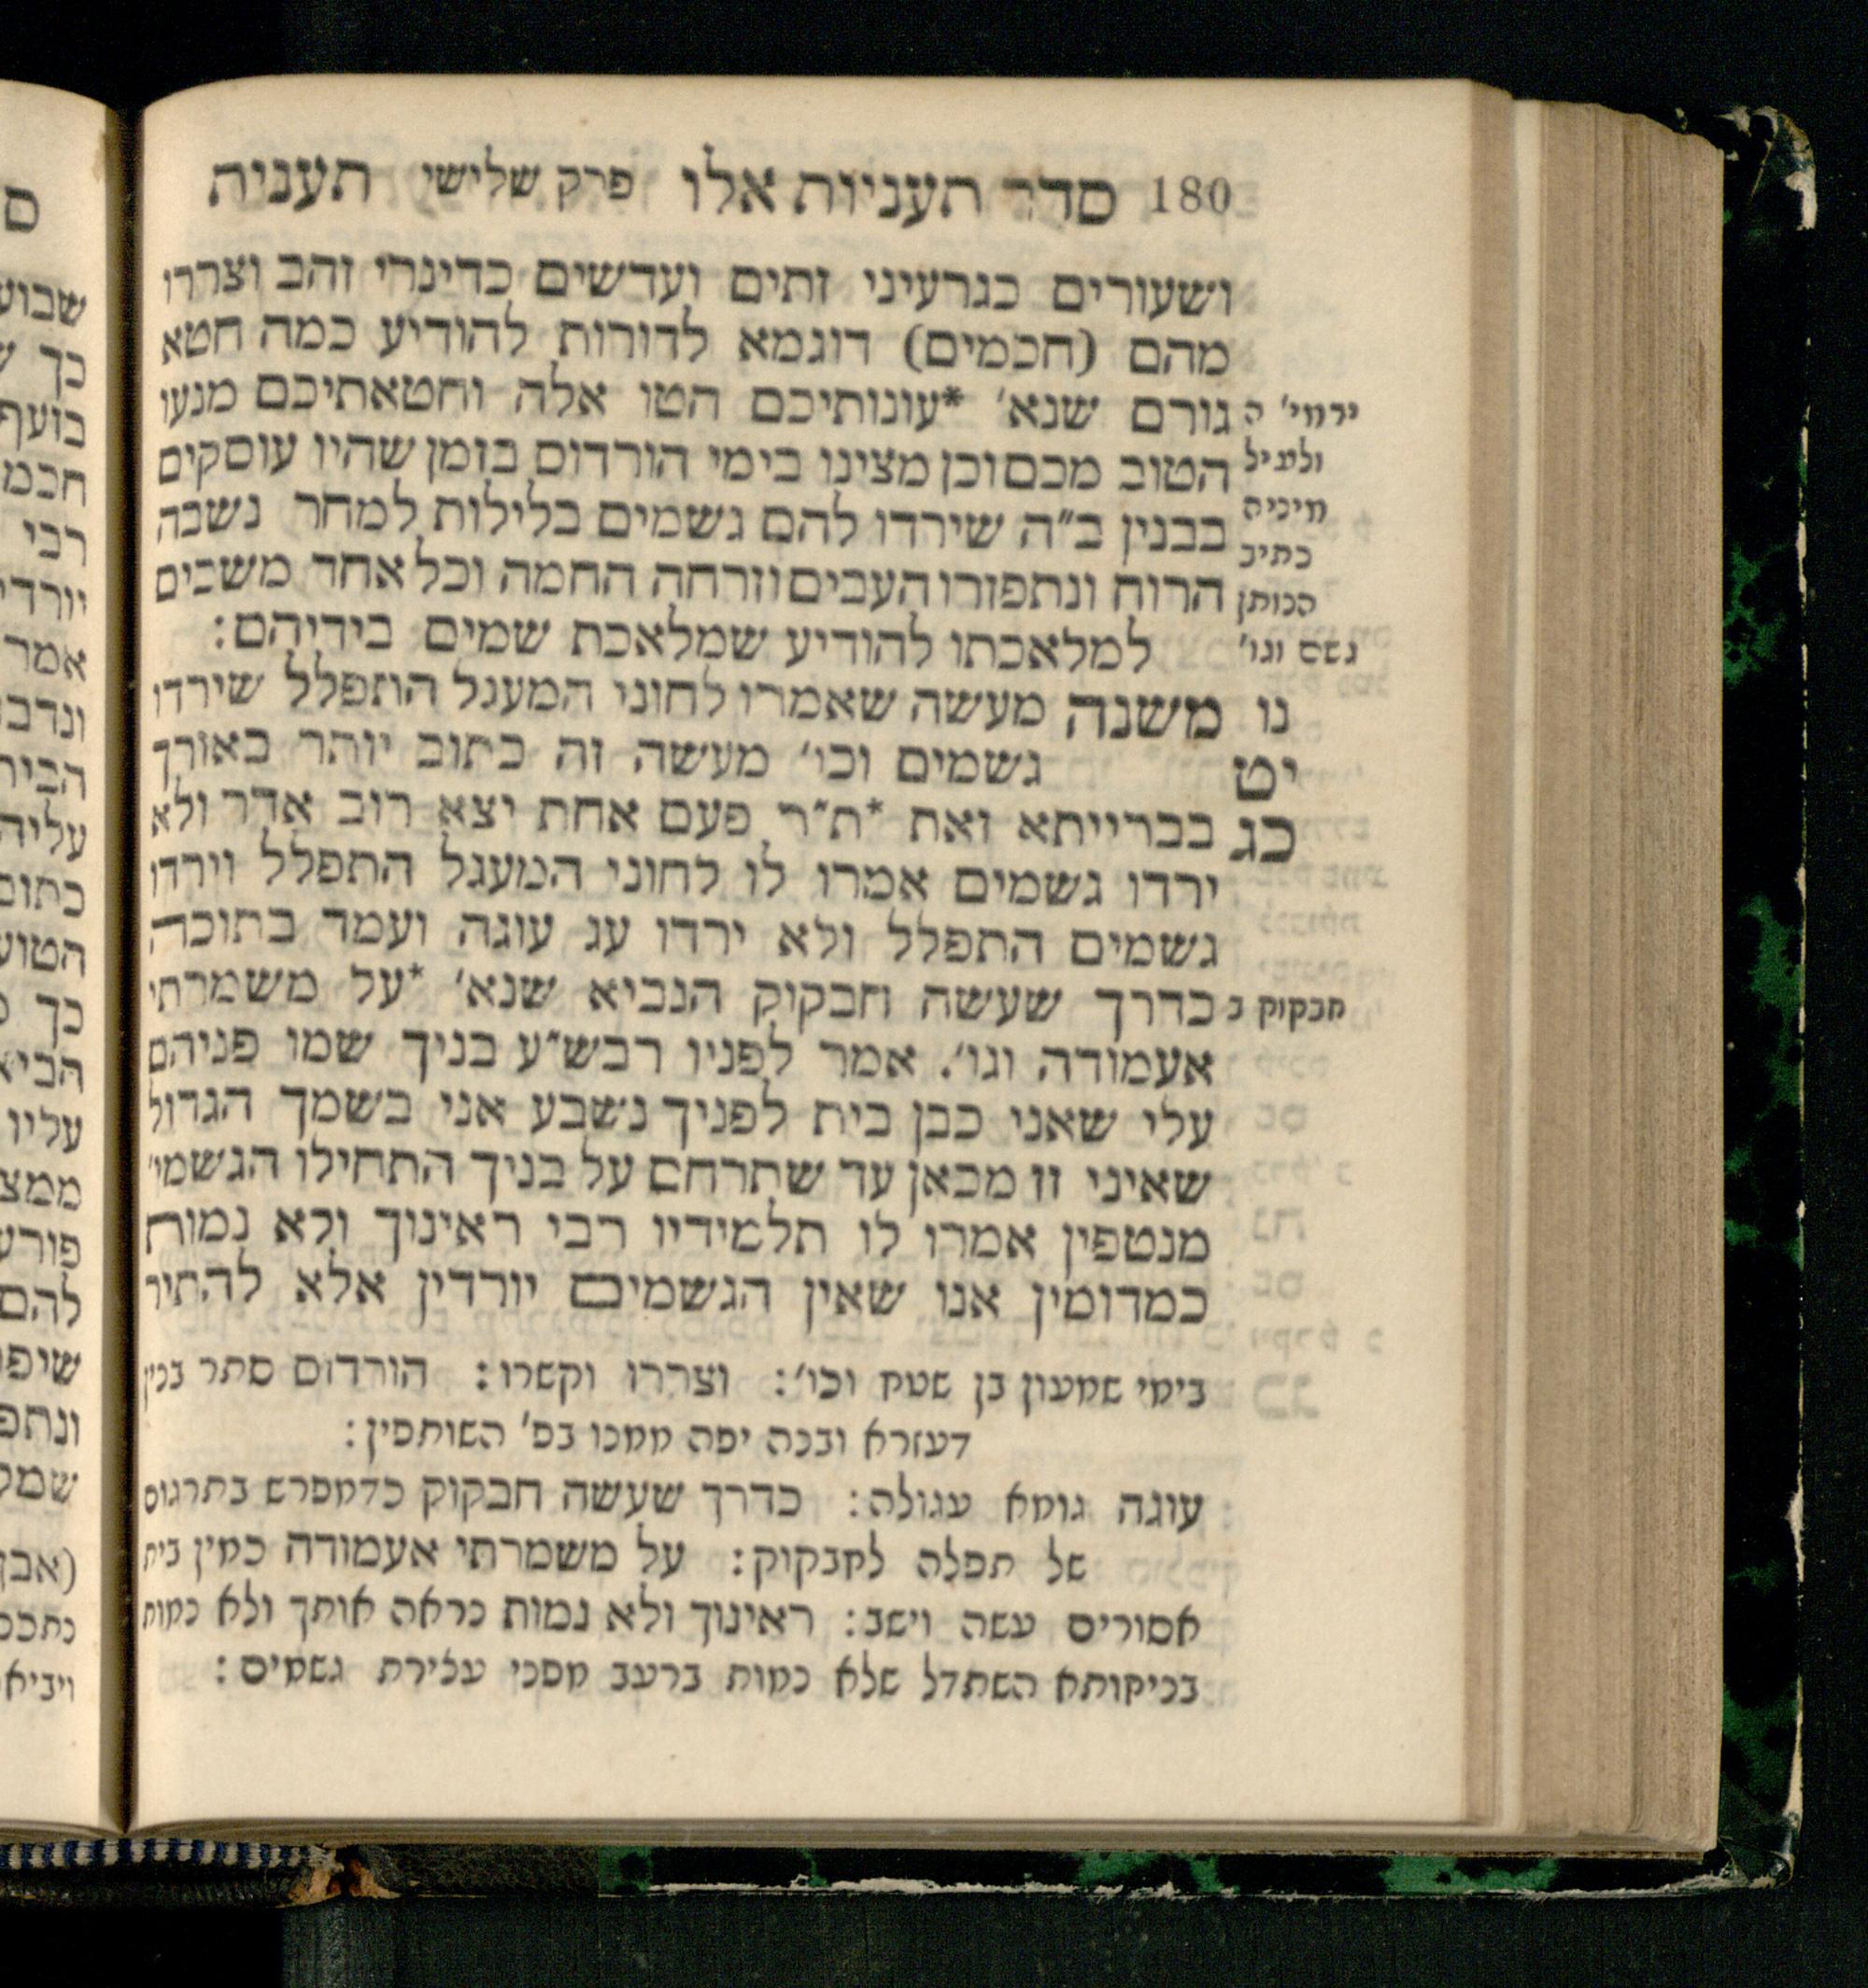 180 סדר תעניות אלו פרק שלישי תענית
ושעורים כגרעיני זתים ועדשים כדינרי זהב וצררו
מהם (חכמים) דוגמא לדורות להודיע כמה חטא
ירמי' ה גורם שנא' *עונותיכם הטו אלה וחטאתיכם מנעו
ולעיל הטוב מכם וכן מצינו בימי הורדוס בזמן שהיו עוסקים
מיניה בבנין ב"ה שירדו להם גשמים בלילות למחר נשבה
כתיב
הנותן הרוח ונתפזרו העבים וזרחה החמה וכל אחד משכים
גשם וגו' למלאכתו להודיע שמלאכת שמים בידיהם:
נו משנה מעשה שאמרו לחוני המעגל התפלל שירדו
יט גשמים וכו' מעשה זה כתוב יותר באורך
כג בברייתא וזאת *ת"ר פעם אחת יצא רוב אדר ולא
ירדו גשמים אמרו לו לחוני המעגל התפלל וירדו
גשמים התפלל ולא ירדו עג עוגה ועמד בתוכה
חבקוק ב כדרך שעשה חבקוק הנביא שנא' *על משמרתי
אעמודה וגו'. אמר לפניו רבש"ע בניך שמו פניהם
עלי שאני כבן בית לפניך נשבע אני בשמך הגדול
שאיני זז מכאן עד שתרחם על בניך התחילו הגשמי'
מנטפין אמרו לו תלמידיו רבי ראינוך ולא נמות
כמדומין אנו שאין הגשמים יורדין אלא להתיר
בימי שמעון בן שטח וכו': וצררו וקשרו: הורדוס סתר בנין
דעזרא ובנה יפה ממנו בפ' השותפין:
עוגה גומא עגולה: כדרך שעשה חבקוק כדמפרש בתרגום
של תפלה לחבקוק: על משמרתי אעמודה כמין בית
אסורים עשה וישב: ראינוך ולא נמות נראה אותך ולא נמות
בניחותא השתדל שלא נמות ברעב מפני עצירת גשמים:
ס
שבוע
כך ש
בועף
חכמ
רבי
יורדי
אמר
ונדב
עליה
כתוב
הטוע
כך
הביא
עליו
ממצ
פורע
להם
שיפ
ונתפ
שמל
(אבן
ויביא